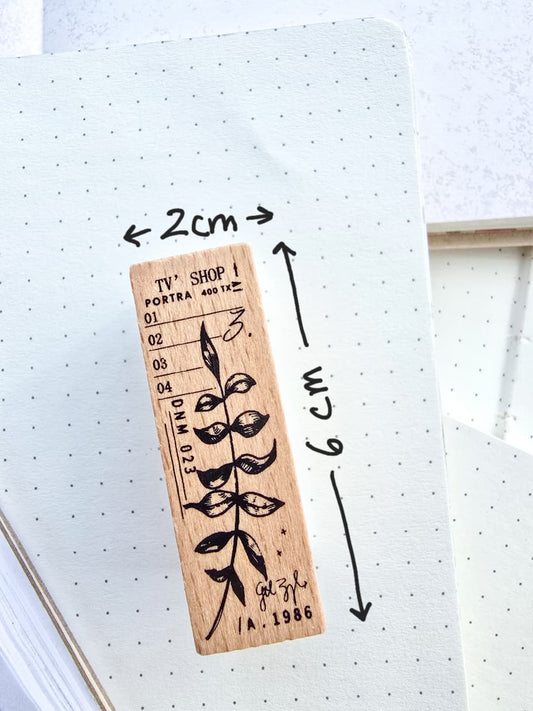 2cm
TV' SHOP
PORTRA 400 TX
01
02
3.
03
04
DNM 023
6cm
/A.1986